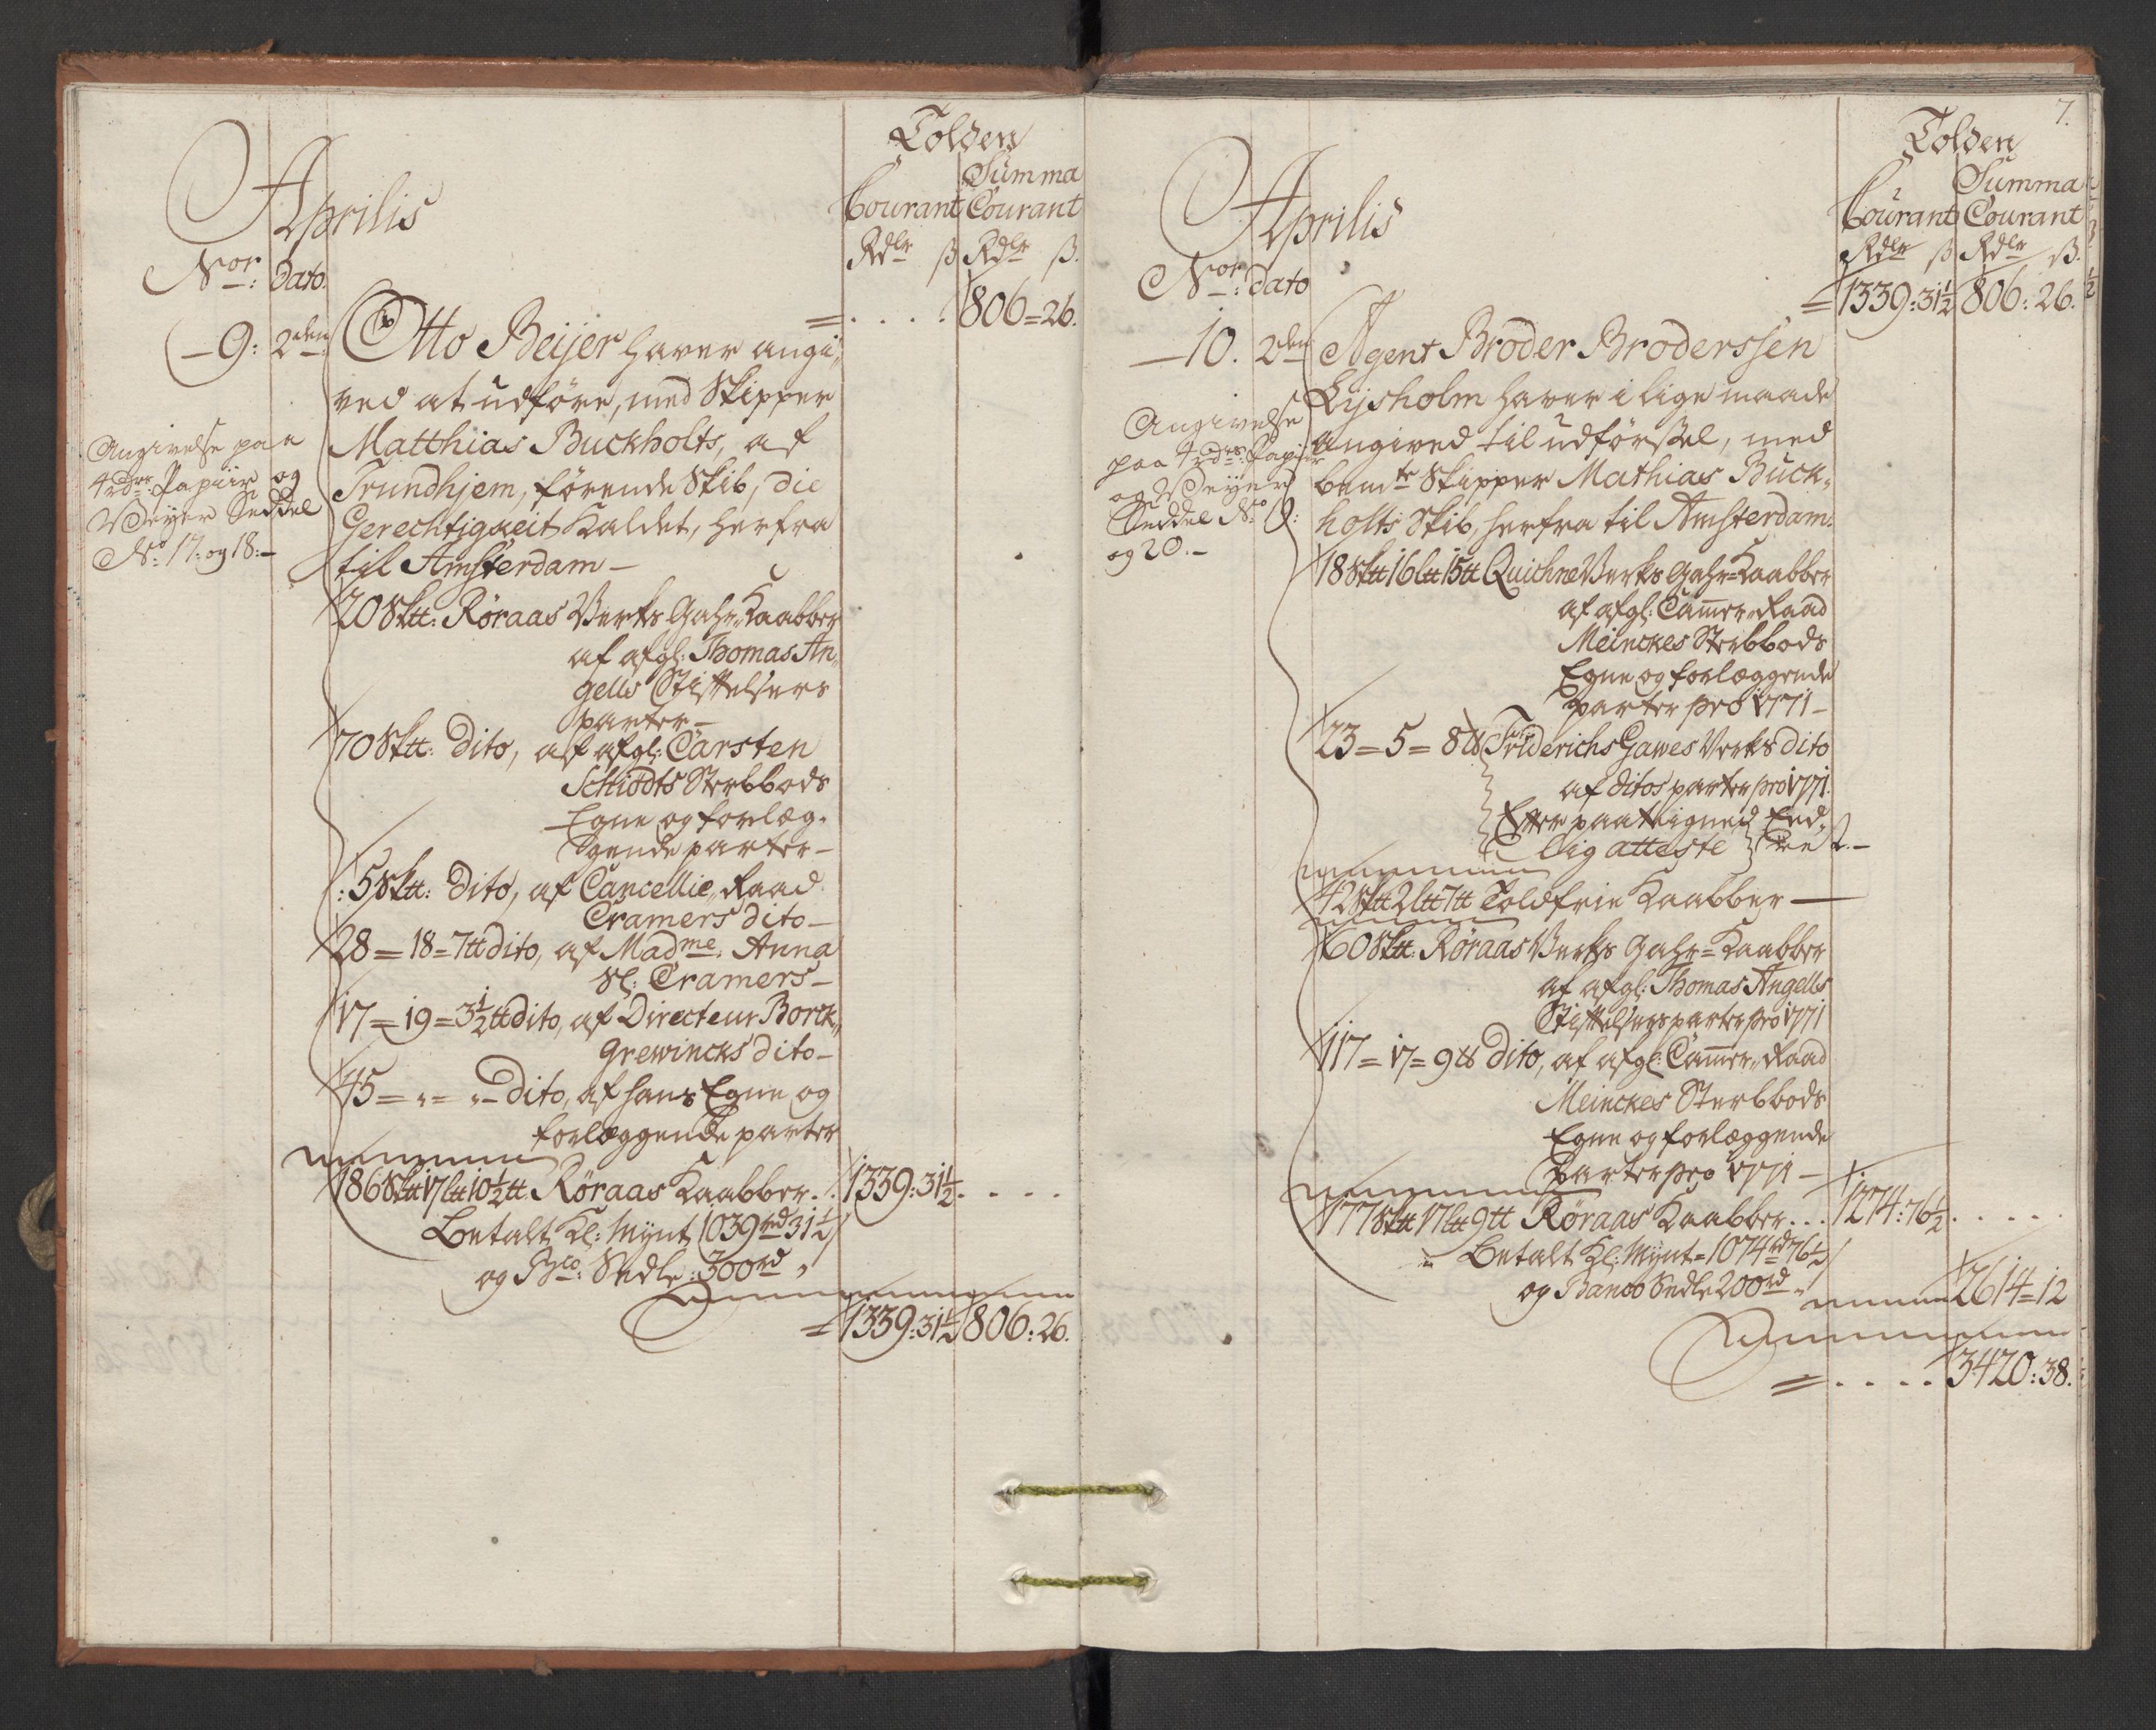 Tolden
Summa
Aprilis
Courant Courant
Rdlr ß Rdlr ß.
Nor: Dato.
= . . . . 806=26.
9: 2den Otto Beijer haver angi„
ved at udføre, med Skipper
Matthias Buckholts, af
Trundhjem, førende Skib, die
Gerechtigkeit Kaldet, herfra
til Amsterdam –
Angivelse paa
4rdrs: Papiir og
Veyer Seddel
No: 17: og 18: –
20 Sktt: Røraas Verks Gahr„Kaabber
af afgl: Thomas An„
gells Stiftelsers
parter –
70 Sktt: dito, af afgl: Carsten
Schiødts Sterbbods
Egne og forlæg„
gende parter –
:5 Sktt: dito, af Cancellie„Raad
Cramers dito –
28 = 18 = 7tt dito, af Madme: Anna
Sl: Cramers –
17 = 19 = 3½tt dito, af Directeur Borck„
Grewincks dito –
45 = „ = „ – dito, af hans Egne og
forlæggende parter
186 Sktt 17 ltt 10½tt Røraas Kaabber . . 1339: 31½ . . . .
Betalt Kl: Mynt 1039rd 31½
og Bco: Sedle: 300rd „
= 1339: 31½ 806: 26.
7.
Tolden
Summa
Aprilis
Courant Courant
Rdlr ß Rdlr ß.
Nor: dato
= 1339: 31½ 806: 26.
10. 2den Agent Broder Brodersen
Lysholm haver i lige maade
angived til udførsel, med
bemte Skipper Mathias Buck„
holts Skib, herfra til Amsterdam:
Angivelse
paa 4rdrs: Papiir
og Veyer
Seddel No: 19:
og 20. –
18 Sktt 16 ltt 15tt Quichne Verks Gahr=Kaabber
af afgl: Cammer„Raad
Meinckes Sterbbods
Egne og forlæggende
parter pro 1771 –
23 = 5 = 8tt Friderichs Gawes Verks dito
af ditos parter pro 1771.
Efter paateigned Eed„
lig atteste
42 Sktt 2 ltt 7tt Toldfrie Kaabber –
60 Sktt: Røraas Verks Gahr=Kaabber
af afgl: Thomas Angells
Stiftelsers parter pro 1771
117 = 17 = 9tt dito, af afgl: Cammer„Raad
Meinckes Sterbbods
Egne og forlæggende
parter pro 1771 –
177 Sktt 17 ltt 9tt Røraas Kaabber . . . 1274: 76½ . . . . .
Betalt Kl: Mynt = 1074rd 76½
og Banco Sedle 200rd „
2614 = 12
= . . . . 3420: 38.